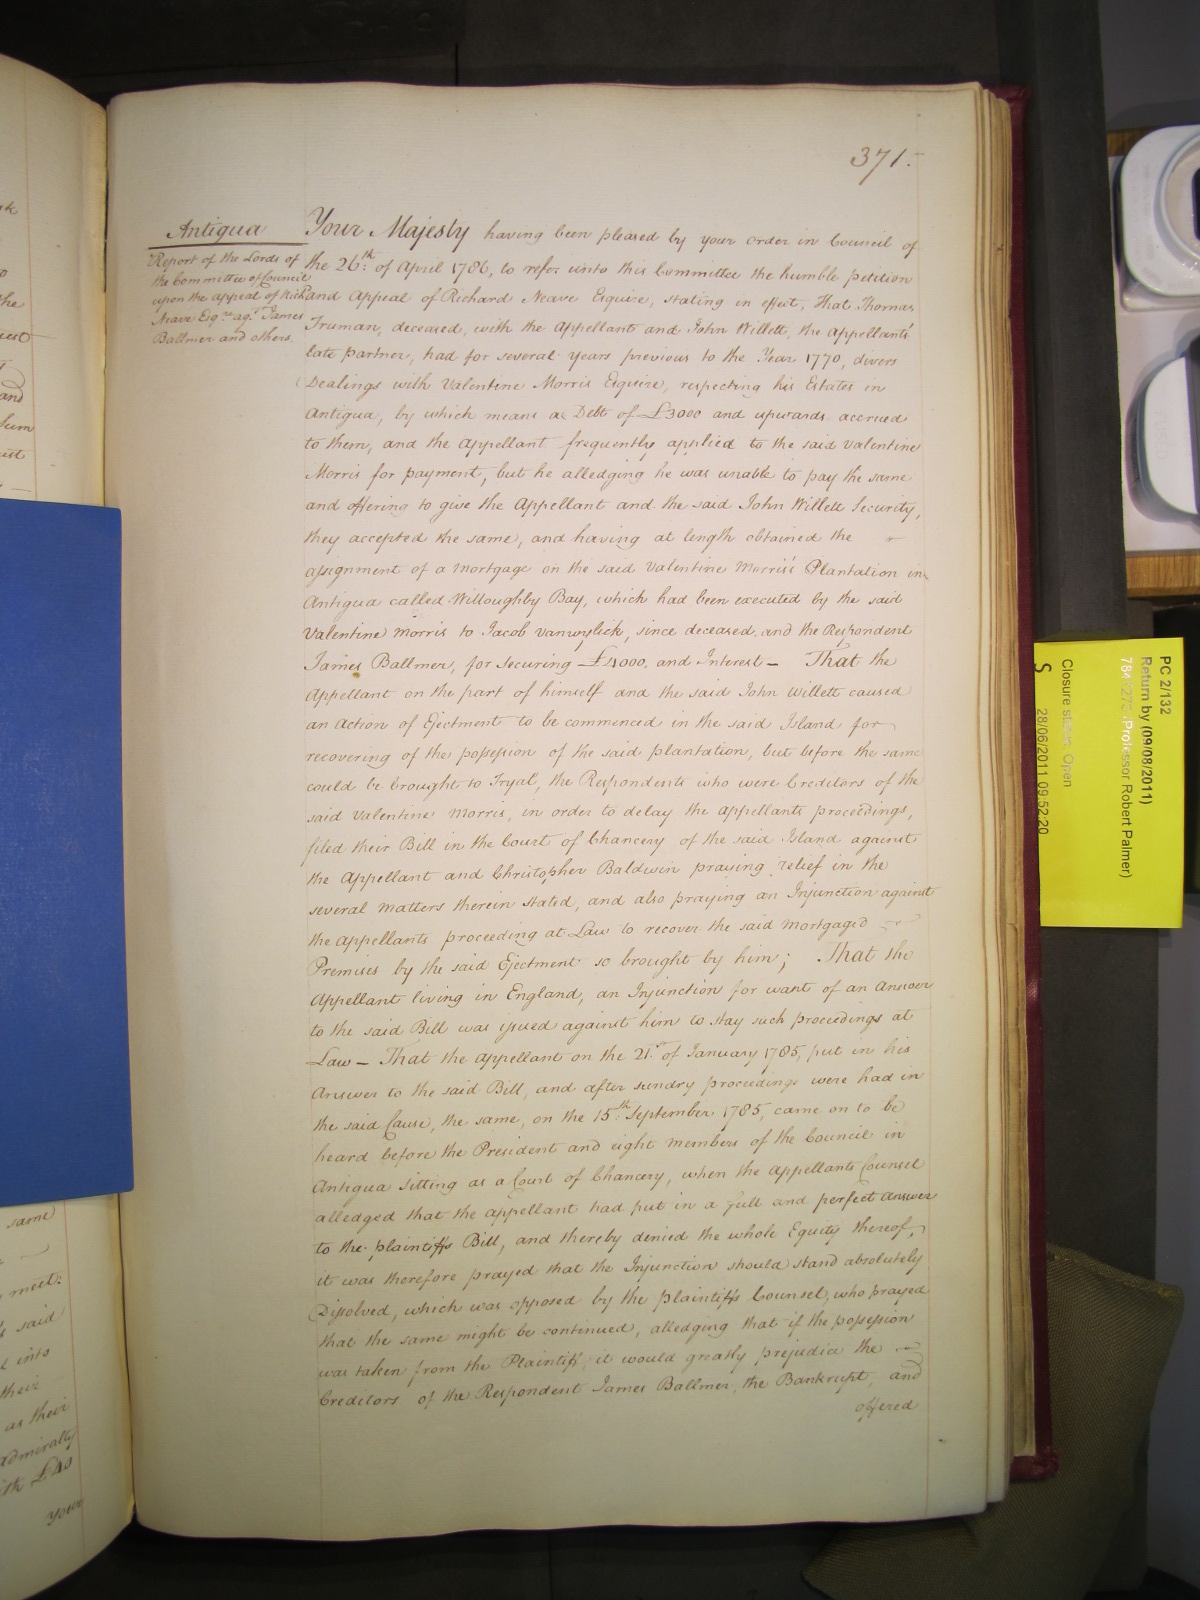 371.
Antigua
Report of the Lords of
the Committee of Council
upon the appeal of Richd
Neave Esqre agt James
Ballmer and others.
Your Majesty having been pleased by your order in Council of
the 26th of April 1786, to refer unto this Committee the humble petition
and Appeal of Richard Neave Esquire, stating in effect, That Thomas
Truman, deceased, with the Appellant and John Willett, the Appellants
late partner, had for several years previous to the Year 1770, divers
Dealings with Valentine Morris Esquire, respecting his Estates in
Antigua, by which means a Debt of £3000 and upwards accrued
to them, and the Appellant frequently applied to the said Valentine
Morris for payment, but he alledging he was unable to pay the same
and offering to give the Appellant and the said John Willett Security,
they accepted the same, and having at length obtained the
assignment of a mortgage on the said Valentine Morris's Plantation in
Antigua called Willoughby Bay, which had been executed by the said
Valentine Morris to Jacob Vanwylick, since deceased and the Respondent
James Ballmer, for securing £4000. and Interest – That the
Appellant on the part of himself and the said John Willett caused
an Action of Ejectment to be commenced in the said Island for
recovering of the possession of the said plantation, but before the same
could be brought to Tryal, the Respondents who were Creditors of the
said Valentine Morris, in order to delay the Appellants proceedings,
filed their Bill in the Court of Chancery of the said Island against
the Appellant and Christopher Baldwin praying relief in the
several matters therein stated, and also praying an Injunction against
the Appellants proceeding at Law to recover the said mortgaged
Premises by the said Ejectment so brought by him; That the
Appellant living in England, an Injunction for want of an Answer
to the said Bill was issued against him to stay such proceedings at
Law – That the Appellant on the 21st of January 1785, put in his
Answer to the said Bill, and after sundry proceedings were had in
the said Cause, the same, on the 15th September 1785, came on to be
heard before the President and eight members of the Council in
Antigua sitting as a Court of Chancery, when the Appellants Counsel
alledged that the appellant had put in a full and perfect Answer
to the plaintiffs Bill, and thereby denied the whole Equity thereof,
it was therefore prayed that the Injunction should stand absolutely
Dissolved, which was opposed by the plaintiffs Counsel, who prayed
that the same might be continued, alledging that if the possession
was taken from the Plaintiff, it would greatly prejudice the
Creditors of the Respondent James Ballmer, the Bankrupt, and
offered
PC 2/132
Return by (09/08/2011)
(Professor Robert Palmer)
Closure status: Open
S
28/06/2011 09:52:20
same
meet:
said
into
their
as their
admiralty
£40
Your